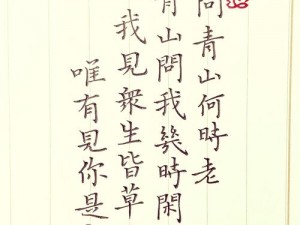 問青山何時老
青山問我幾時閑
我見衆生皆草
唯有見你是